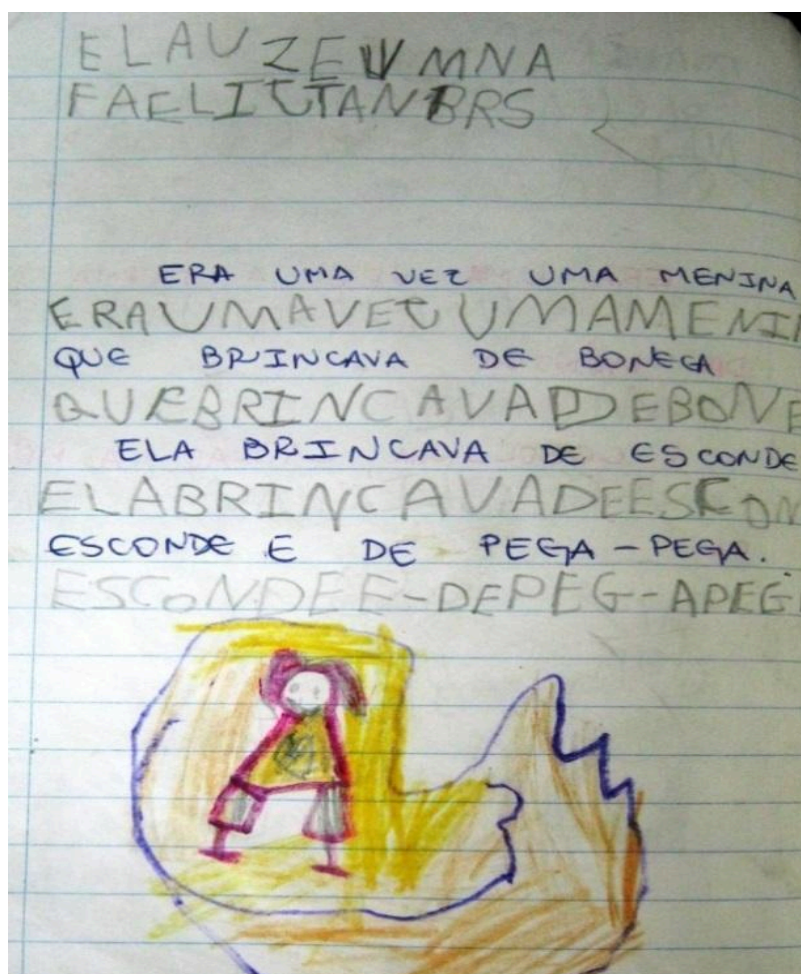 ELAUZEUMNA
FAELICTANBRS
ERA UMA VEZ UMA MENINA
ERAUMAVEZUMAMENI
QUE BRINCAVA DE BONECA
QUEBRINCAVADDEBONE
ELA BRINCAVA DE ESCONDE
ELABRINCAVADEESCON
ESCONDE E DE PEGA-PEGA.
ESCONDEE-DEPEG-APEG